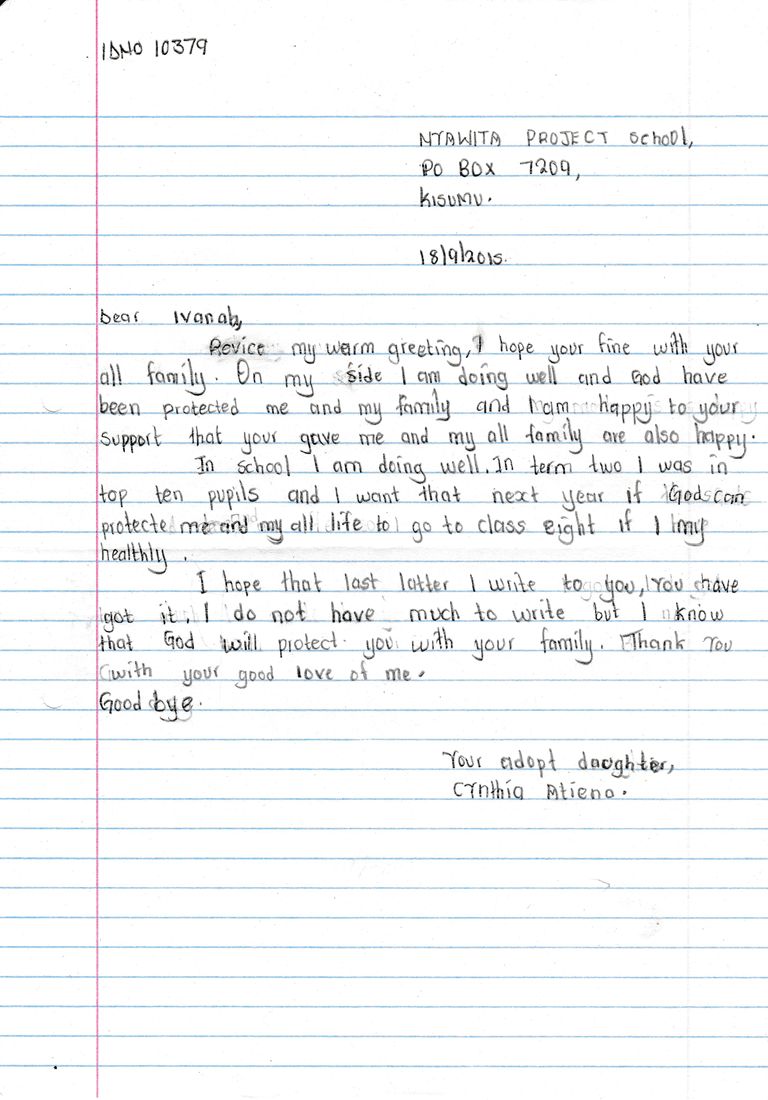 IDNO 10379
NYAWITA PROJECT School,
PO BOX 7209,
KISUMU.
18/9/2015.
Dear Ivanah,
Revice my warm greeting, I hope your fine with your
all family. On my side I am doing well and God have
been protected me and my family and I am happy to your
support that your gave me and my all family are also happy.
In school I am doing well. In term two I was in
top ten pupils and I want that next year if God can
protecte me and my all life to go to class eight if I my
healthly.
I hope that last latter I write to you, You have
got it. I do not have much to write but I know
that God will protect you with your family. Thank You
with your good love of me.
Good bye.
Your adopt daughter,
Cynthia Atieno.